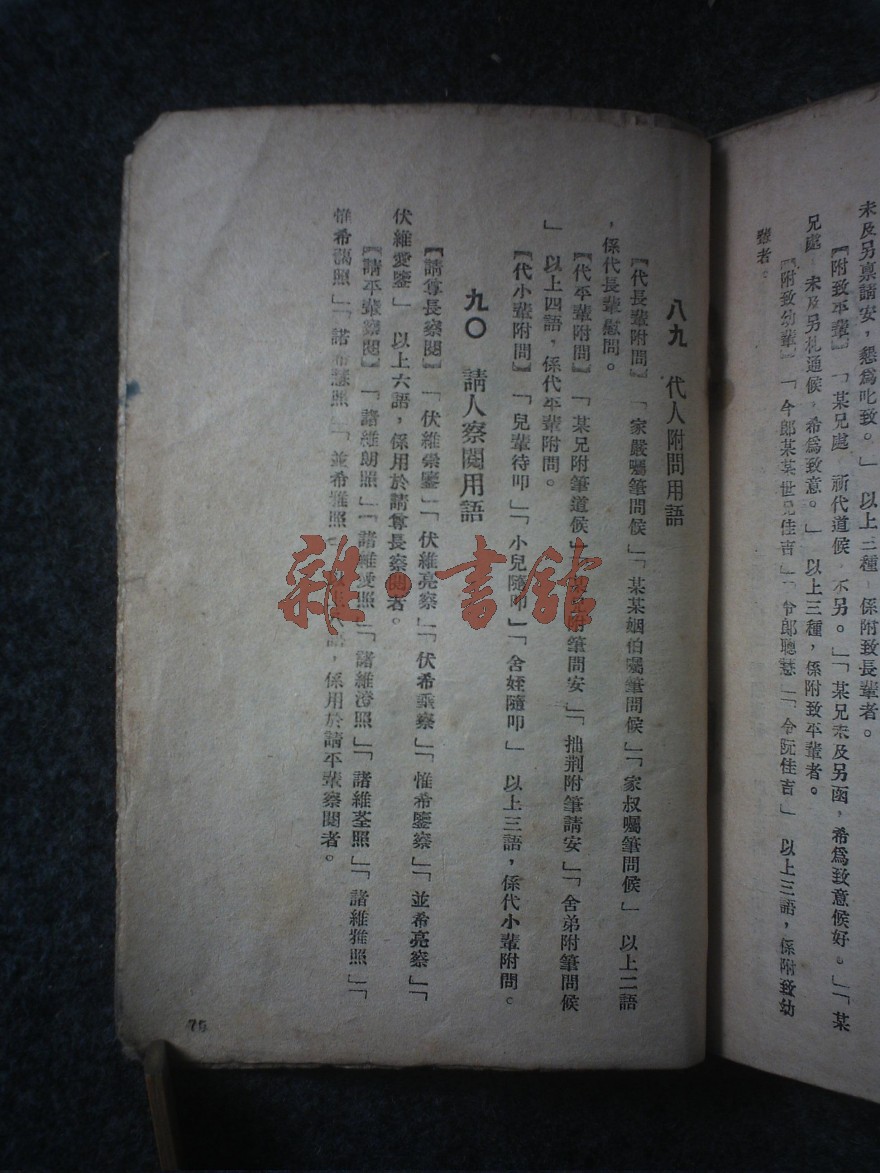 未及另稟請安，懇爲叱致。」　以上三種　係附致長輩者。
【附致平輩】「某兄處　祈代道候，不另。」「某兄未及另函，希爲致意候好。」「某
兄處　未及另札通候，希爲致意。」　以上三種，係附致平輩者。
【附致幼輩】「令郎某某世兄佳吉」「令郎聰慧」「令阮佳吉」　以上三語，係附致幼
輩者。
八九　代人附問用語
【代長輩附問】「家嚴囑筆問候」「某某姻伯囑筆問候」「家叔囑筆問候」　以上三語
，係代長輩慰問。
【代平輩附問】「某兄附筆道候」「附筆問安」「拙荆附筆請安」「舍弟附筆問候
」　以上四語，係代平輩附問。
【代小輩附問】「兒輩待叩」「小兒隨叩」「舍姪隨叩」　以上三語，係代小輩附問。
九〇　請人察閱用語
【請尊長察閱】「伏維崇鑒」「伏維亮察」「伏希垂察」「惟希鑒察」「並希亮察」「
伏維愛鑒」　以上六語，係用於請尊長察閱者。
【請平輩察閱】「諸維朗照」「諸維愛照」「諸維澄照」「諸維荃照」「諸維雅照」「
惟希藹照」「諸希慧照」「並希雅照」語，係用於請平輩察閱者。
75
雜·書館